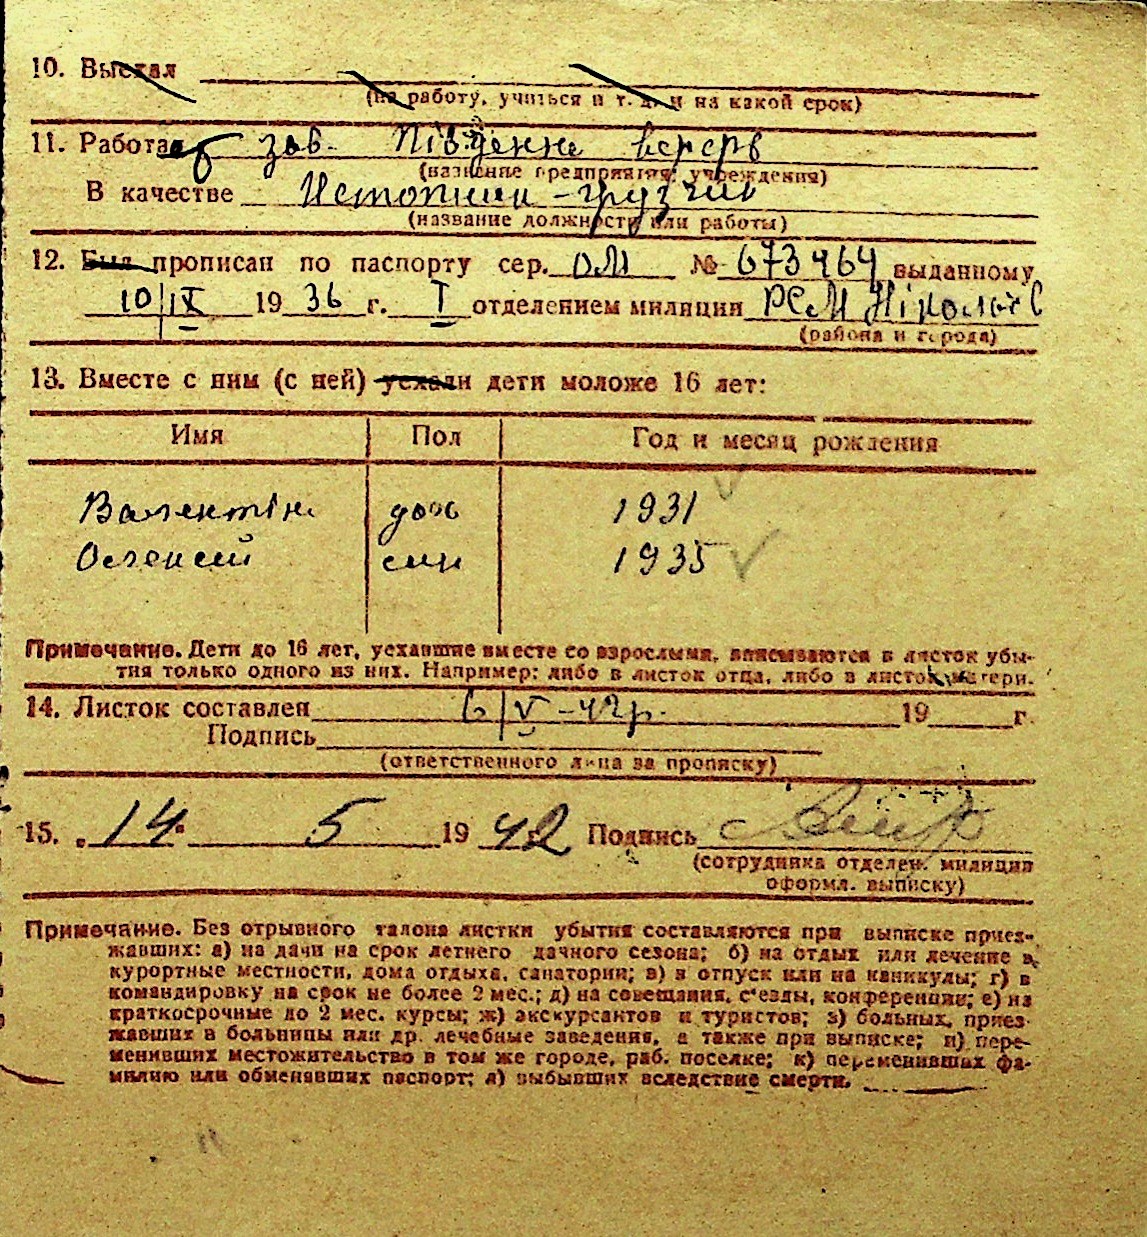 10. Выехал
(на работу, учиться и т. д. и на какой срок)
11. Работает зав. Південна верфь
(название предприятия, учреждения)
В качестве Истопник - грузчик
(название должности или работы)
12. Был прописан по паспорту сер. ОМ № 673464 выданному
10/IX 1936 г. I отделением милиции РСМ Ніколаїв
(района и города)
13. Вместе с ним (с ней) уехали дети моложе 16 лет:
Имя Пол Год и месяц рождения
Валентін дочь 1931
Олексей син 1935
Примечание. Дети до 16 лет, уехавшие вместе со взрослыми, вписываются в листок убы-
тия только одного из них. Например: либо в листок отца, либо в листок матери.
14. Листок составлен 6/V-42р. 19 г.
Подпись
(ответственного лица за прописку)
15. „14" 5 1942 Подпись
(сотрудника отделен. милиции
оформл. выписку)
Примечание. Без отрывного талона листки убытия составляются при выписке приез-
жавших: а) на дачи на срок летнего дачного сезона; б) на отдых или лечение в
курортные местности, дома отдыха, санатории; в) в отпуск или на каникулы; г) в
командировку на срок не более 2 мес.; д) на совещания, с'езды, конференции; е) на
краткосрочные до 2 мес. курсы; ж) экскурсантов и туристов; з) больных, приез-
жавших в больницы или др. лечебные заведения, а также при выписке; и) пере-
менивших местожительство в том же городе, раб. поселке; к) переменивших фа-
милию или обменявших паспорт; л) выбывших вследствие смерти.